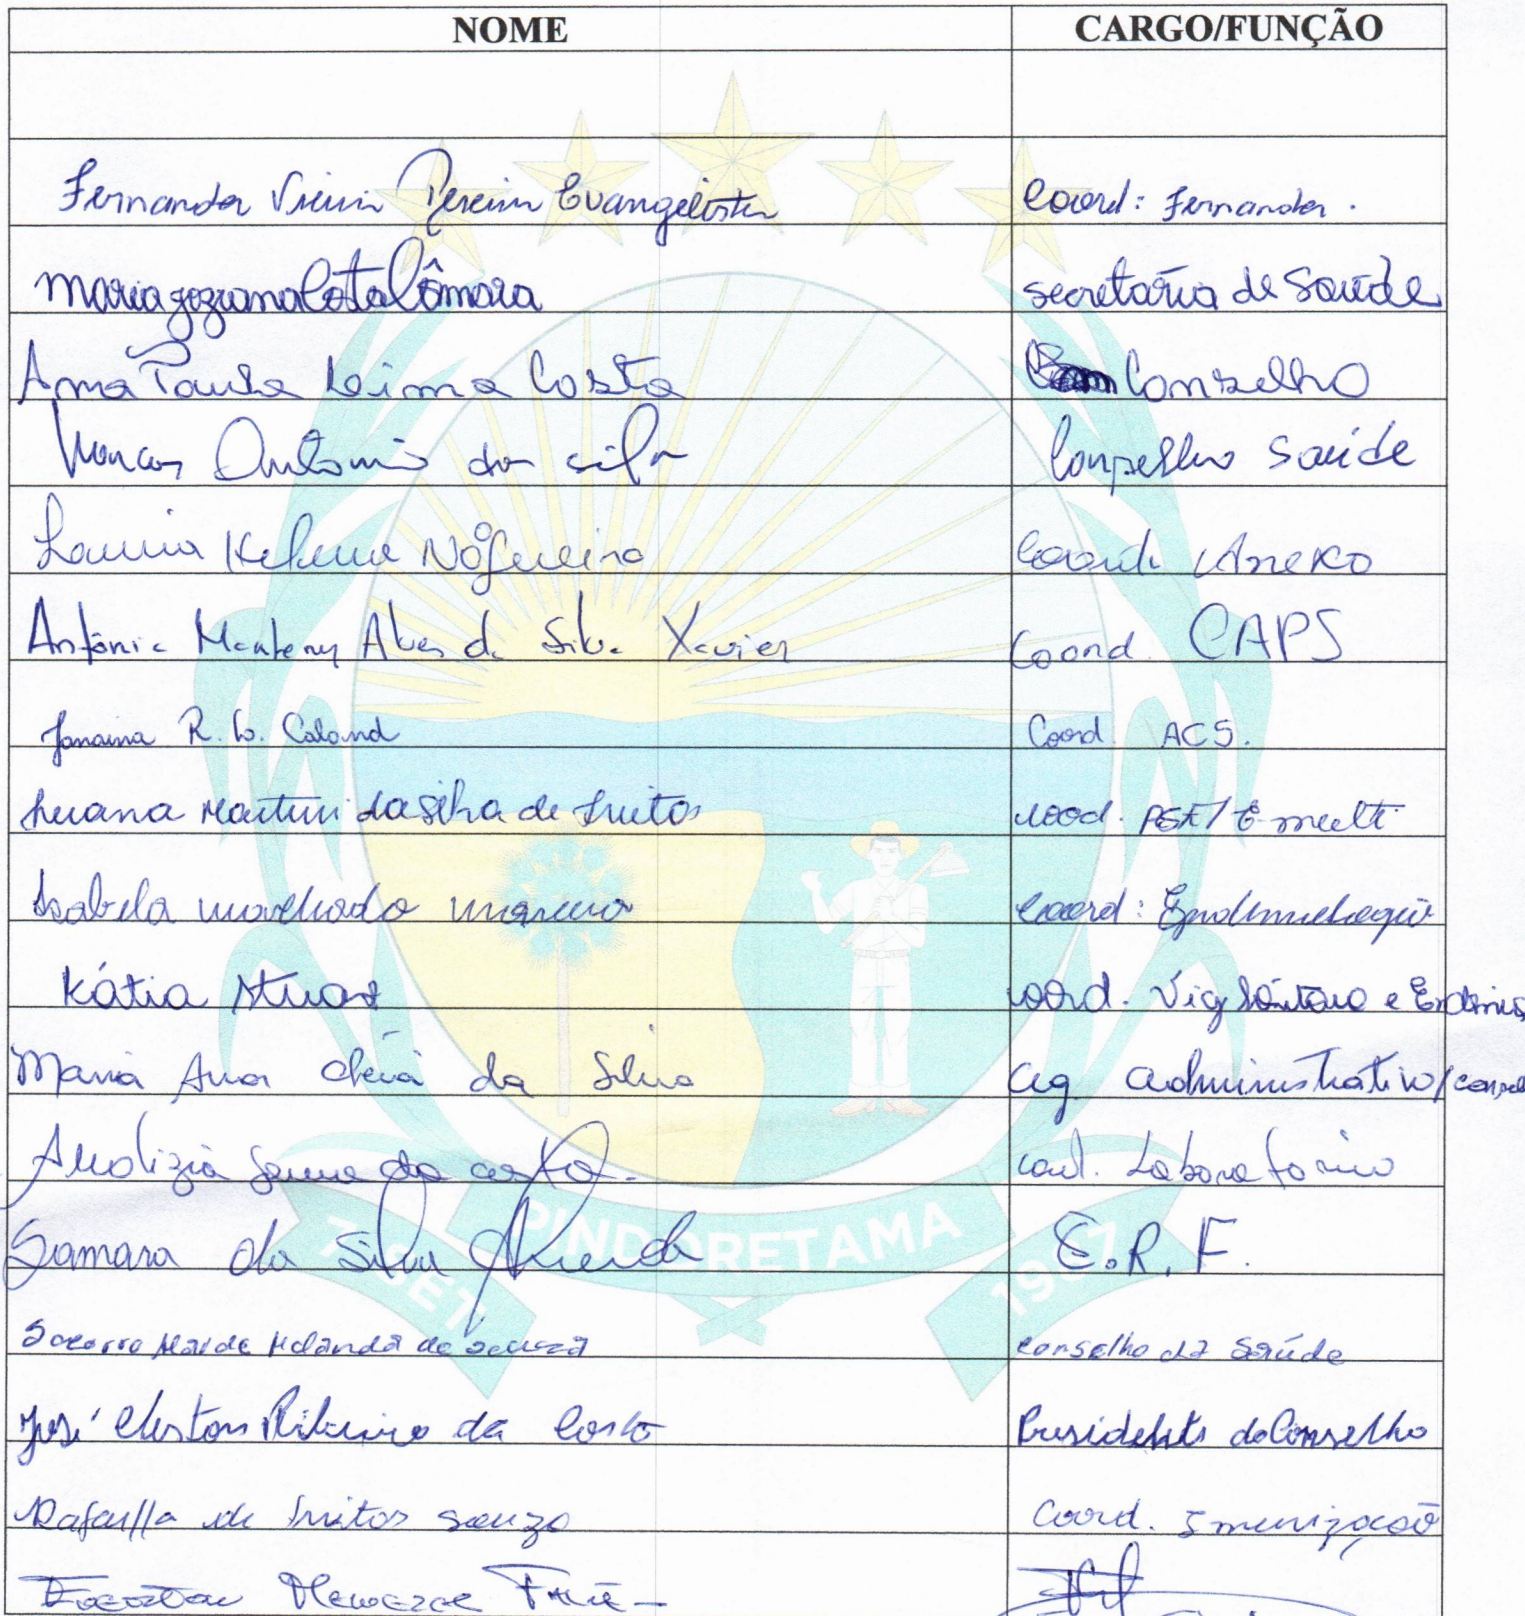 NOME CARGO/FUNÇÃO
Fernanda Vieira Pereira Evangelista Coord: Fernanda.
Maria Costa Câmara secretaria de Saúde
Ana Paula Lima Costa Conselho
Marcos Antonio da Silva Conselho Saúde
Helena Nogueira Coord. Anexo
Antônia Alves da Silva Xavier Coord. CAPS
Janaina R. Coord. ACS.
Luana Martins da Silva de Freitas Cood. E-multi
Isabela machado Coord: Epidemiologia
Kátia Coord. Vig Sanitária e Endemias
Maria Ana da Silva Ag Administrativo/
da costa. Laboratório
Samara da Silva E.R.F.
Socorro Holanda de Conselho da Saúde
José Ribeiro da Costa Presidente do Conselho
Rafaella de Freitas Souza Coord. Imunização
PINDORETAMA
7 SET
1987